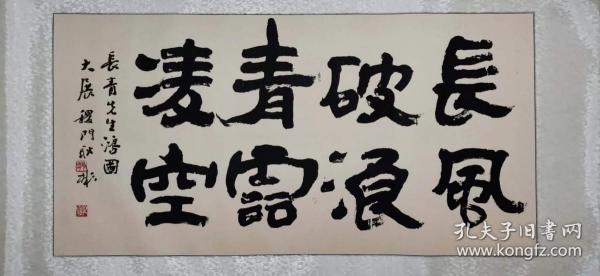 長風
破浪
青雲
凌空
長青先生鴻圖
大展 稷門
孔夫子旧书网
www.kongfz.com